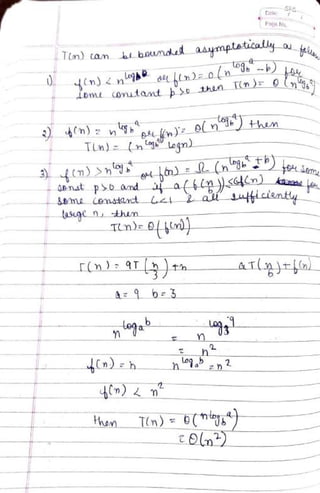 Date:
Page No.
T(n) can be bounded asymptotically as follow
1) f(n) < n^log_b a or f(n) = O(n^log_b a - b) for
some constant p>0 then T(n) = θ(n^log_b a)
2) f(n) = n^log_b a or f(n) = θ(n^log_b a) then
T(n) = (n^log_b a logn)
3) f(n) > n^log_b a or f(n) = Ω(n^log_b a + b) for some
const p>0 and if a(f(n/b)) <cf(n) for
some constant c<1 & all sufficiently
large n, then
T(n) = θ(f(n))
T(n) = 9T(n/3) + n aT(n/b) + f(n)
a = 9 b = 3
n^log_a b = n^log_3 9
= n^2
f(n) = n n^log_a b = n^2
f(n) < n^2
then T(n) = θ(n^log_b a)
= θ(n^2)